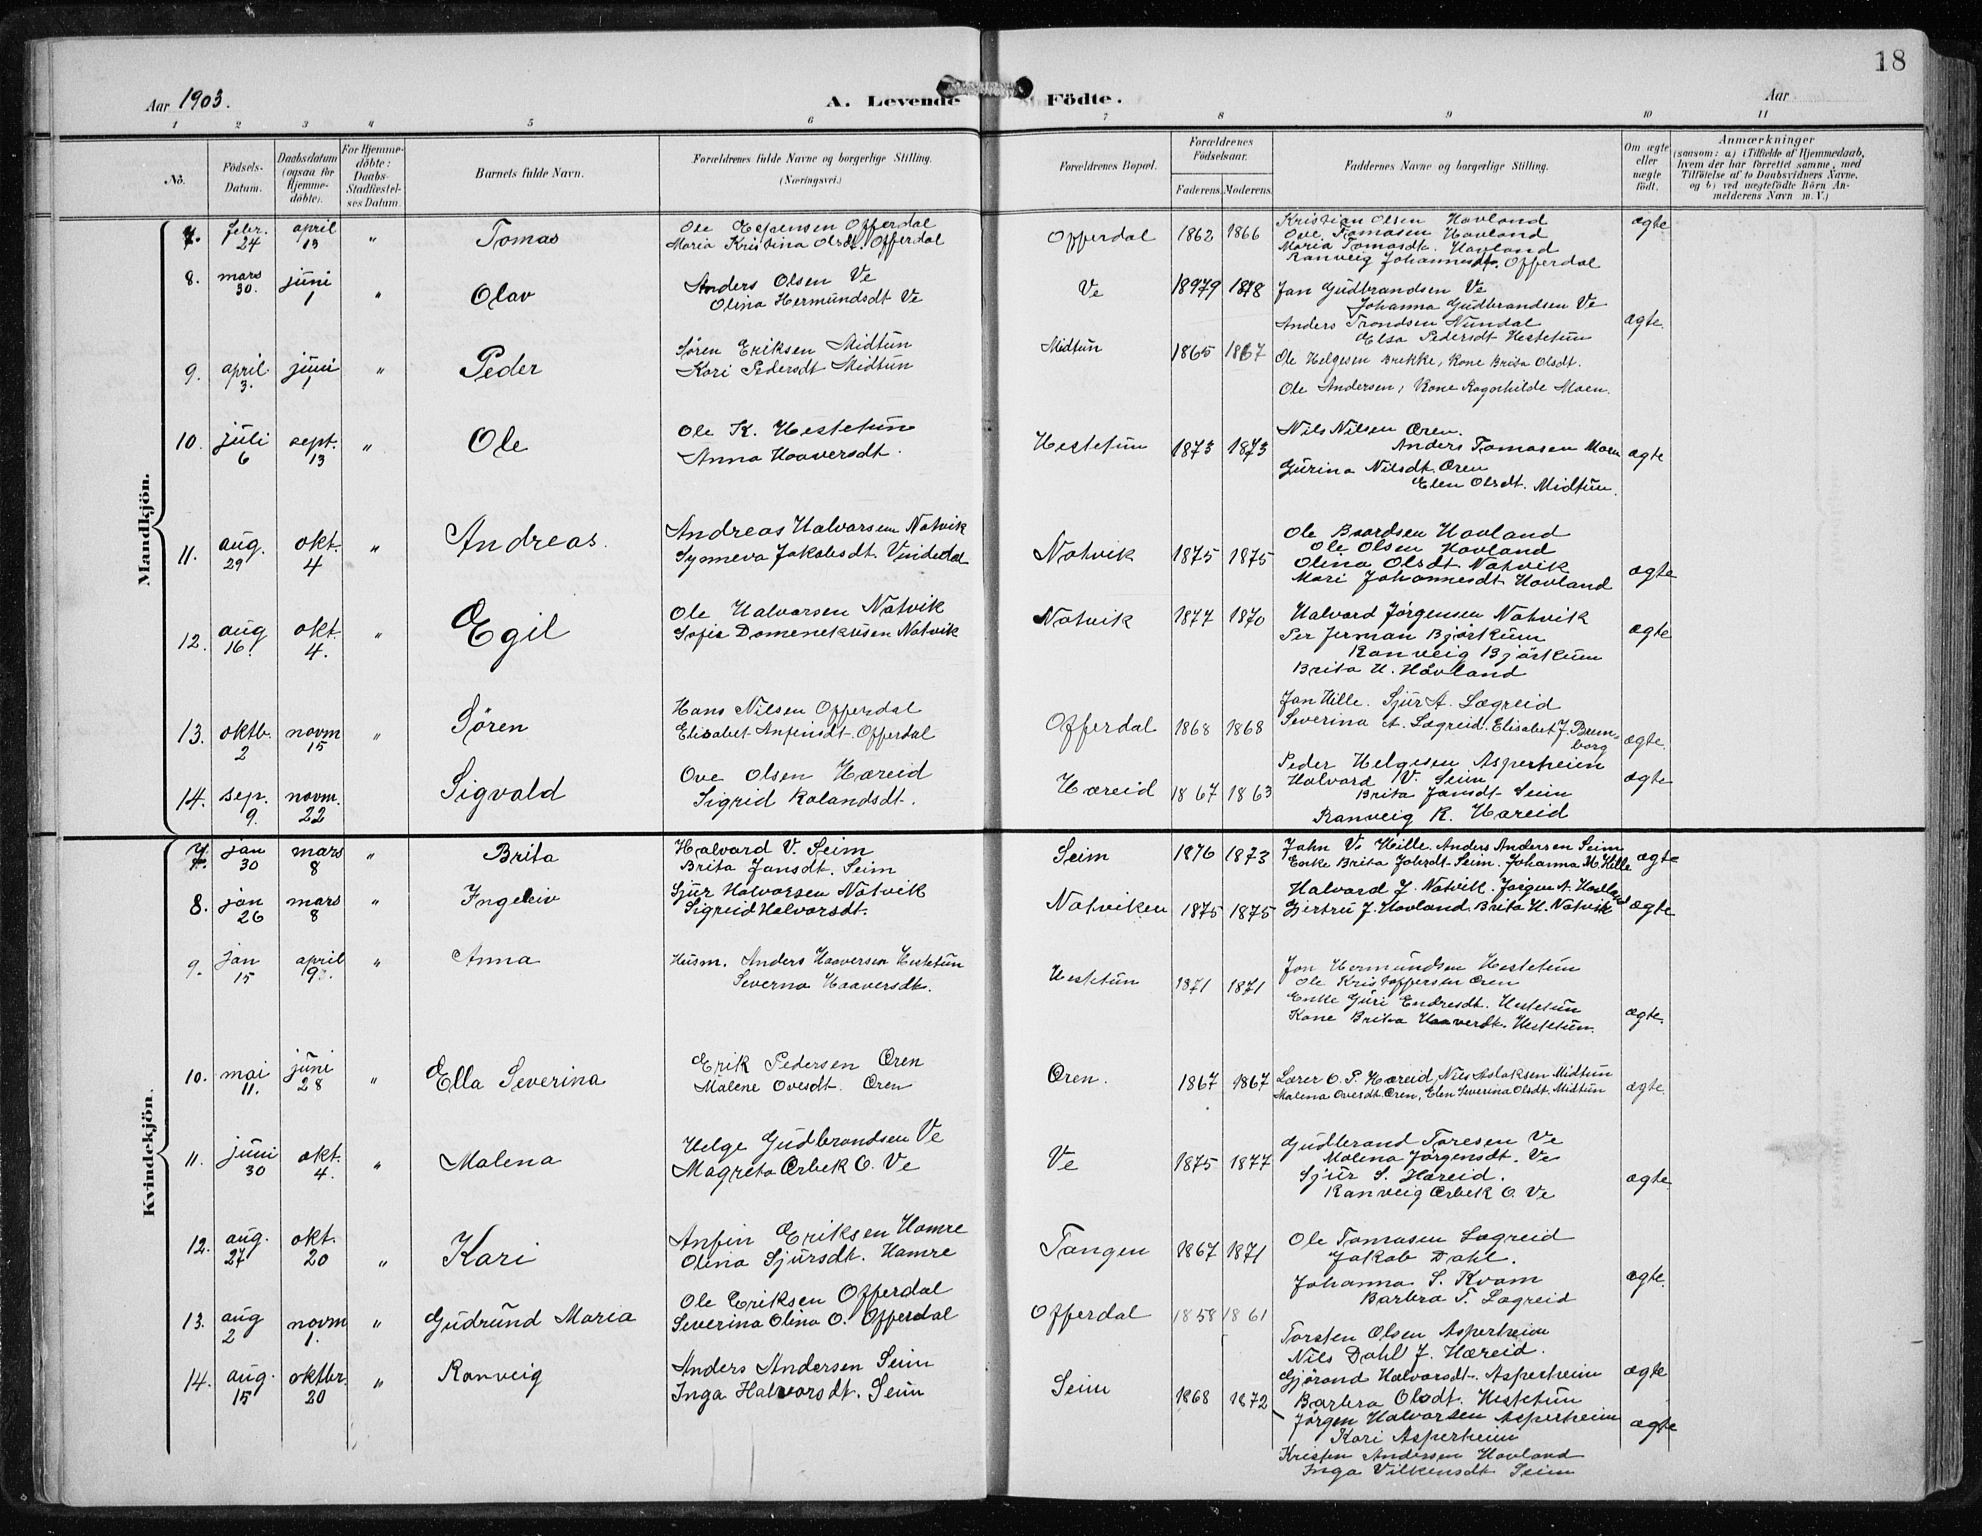 18
Aar 1903.
A. Levende Födte.
Aar
1 2 3 4 5 6 7 8 9 10 11
No.
Födsels-Datum.
Daabsdatum (ogsaa for Hjemme-döbte).
For Hjemme-döbte: Daabs-Stadfæstel-ses Datum.
Barnets fulde Navn.
Forældrenes fulde Navne og borgerlige Stilling. (Næringsvei.)
Forældrenes Bopæl.
Forældrenes Födselsaar.
Faderens. Moderens.
Faddernes Navne og borgerlige Stilling.
Om ægte eller uægte födt.
Anmærkninger
(saasom: a) i Tilfælde af Hjemmedaab, hvem der har forrettet samme, med Tilföielse af to Daabsvidners Navne, og b) ved uægtefödte Börn An-melderens Navn m. V.)
Mandkjön.
7. febr. 24 april 13 " Tomas
Ole Espensen Offerdal
Maria Kristina Olsdt. Offerdal
Offerdal 1862 1866
Kristian Olsen Hovland
Ove Tomasen Hovland
Maria Tomasdt. Hovland
Ranveig Johannesdt. Offerdal
ægte
8. mars 30. juni 1 " Olav
Anders Olsen Ve
Olina Hermundsdt Ve
Ve 18979 1878
Jan Gudbrandsen Ve
Johanna Gudbrandsen Ve
Anders Trondsen Nundal
Elsa Pedersdt Hestetun
ægte.
9. april 3. juni 1 " Peder
Søren Eriksen Midtun
Kari Pedersdt Midtun
Midtun 1865 1867
Ole Helgesen Brekke, Kone Brita Olsdt.
Ole Andersen, Kone Ragnhilde Moen.
10. juli 6 sept. 13 " Ole
Ole K. Hestetun
Anna Haaversdt.
Hestetun 1873 1873
Nils Nilsen Øren.
Anders Tomasen Moen
Gurina Nilsdt. Øren
Elen Olsdt. Midtun.
ægte
11. aug. 29 okt. 4 " Andreas.
Andreas Halvarsen Natvik
Synneva Jakobsdt. Vindedal
Natvik 1875 1875
Ole Baardsen Hovland
Ole Olsen Hovland
Olina Olsdt Natvik
Mari Johannesdt Hovland
ægte
12. aug 16. okt. 4. " Egil
Ole Halvarsen Natvik
Sofie Domenekusen Natvik
Natvik 1877 1870
Halvard Jørgensen Natvik
Per Jerman Bjørkum
Ranveig Bjørkum
Brita H. Hovland
ægte
13. oktb. 2 novm 15 " Søren
Hans Nilsen Offerdal
Elisabet Anfinsdt. Offerdal
Offerdal 1868 1868
Jan Hille. Sjur A. Lægreid
Severina A. Lægreid. Elisabet J.
ægte.
14. sep. 9. novm. 22 Sigvald
Ove Olsen Hæreid
Sigrid Rolandsdt.
Hæreid 1867 1863
Peder Helgesen Asperheim
Halvard V. Seim
Brita Jansdt Seim
Ranveig R. Hæreid
ægte
Kvindekjön.
7. jan 30 mars 8 " Brita
Halvard V. Seim
Brita Jansdt. Seim
Seim 1876 1873
John V. Hille. Anders Andersen Seim
Enke Brita Johsdt. Seim. Johanna M Hille
ægte
8. jan 26 mars 8 " Ingeleiv
Sjur Halvorsen Natvik
Sigreid Halvorsdt.
Natviken 1875 1875
Halvard J. Natvik. Jørgen A. Hovland
Gjertru J. Hovland. Brita H. Natvik
ægte
9. jan 15 april 9. " Anna
Husm. Anders Haaversen Hestetun
Severna Haaversdt.
Hestetun 1871 1871
Jon Hermundsen Hestetun
Ole Kristoffersen Øren
Enke Guri Endresdt. Hestetun
Kone Brita Haaverdt. Hestetun.
ægte.
10. mai 11. juni 28 " Ella Severina
Erik Pedersen Øren
Malene Ovesdt. Øren
Øren. 1867 1867
Lærer O. P. Hæreid, Nils Aslaksen Midtun
Malena Ovesdt. Øren, Elen Severina Olsdt. Midtun
ægte.
11. juni 30 okt. 4. " Malena
Helge Gudbrandsen Ve
Magreta Ørbek O. Ve
Ve 1875 1877
Gudbrand Toresen Ve
Malena Jørgensdt. Ve
Sjur S. Hæreid.
Ranveig Ørbek O. Ve
ægte.
12. aug. 27 okt. 20 " Kari
Anfin Eriksen Hamre
Olina Sjursdt. Hamre
Tangen 1867 1871
Ole Tomasen Lægreid
Jakob Dahl.
Johanna S. Kvam
Barbra T. Lægreid
ægte.
13. aug 2 novm 1. " Gudrund Maria
Ole Eriksen Offerdal
Severina Olina O. Offerdal
Offerdal 1858 1861
Torsten Olsen Asperheim
Nils Dahl J. Hæreid.
Gjørand Halvorsdt. Asperheim
Barbra Olsdt. Hestetun
ægte
14. aug. 15 oktbr. 20 " Ranveig
Anders Andersen Seim
Inga Halvorsdt. Seim
Seim 1868 1872
Jørgen Halvorsen Asperheim
Kari Asperheim
Kristen Andersen Hovland
Inga Vilkensdt Seim
ægte